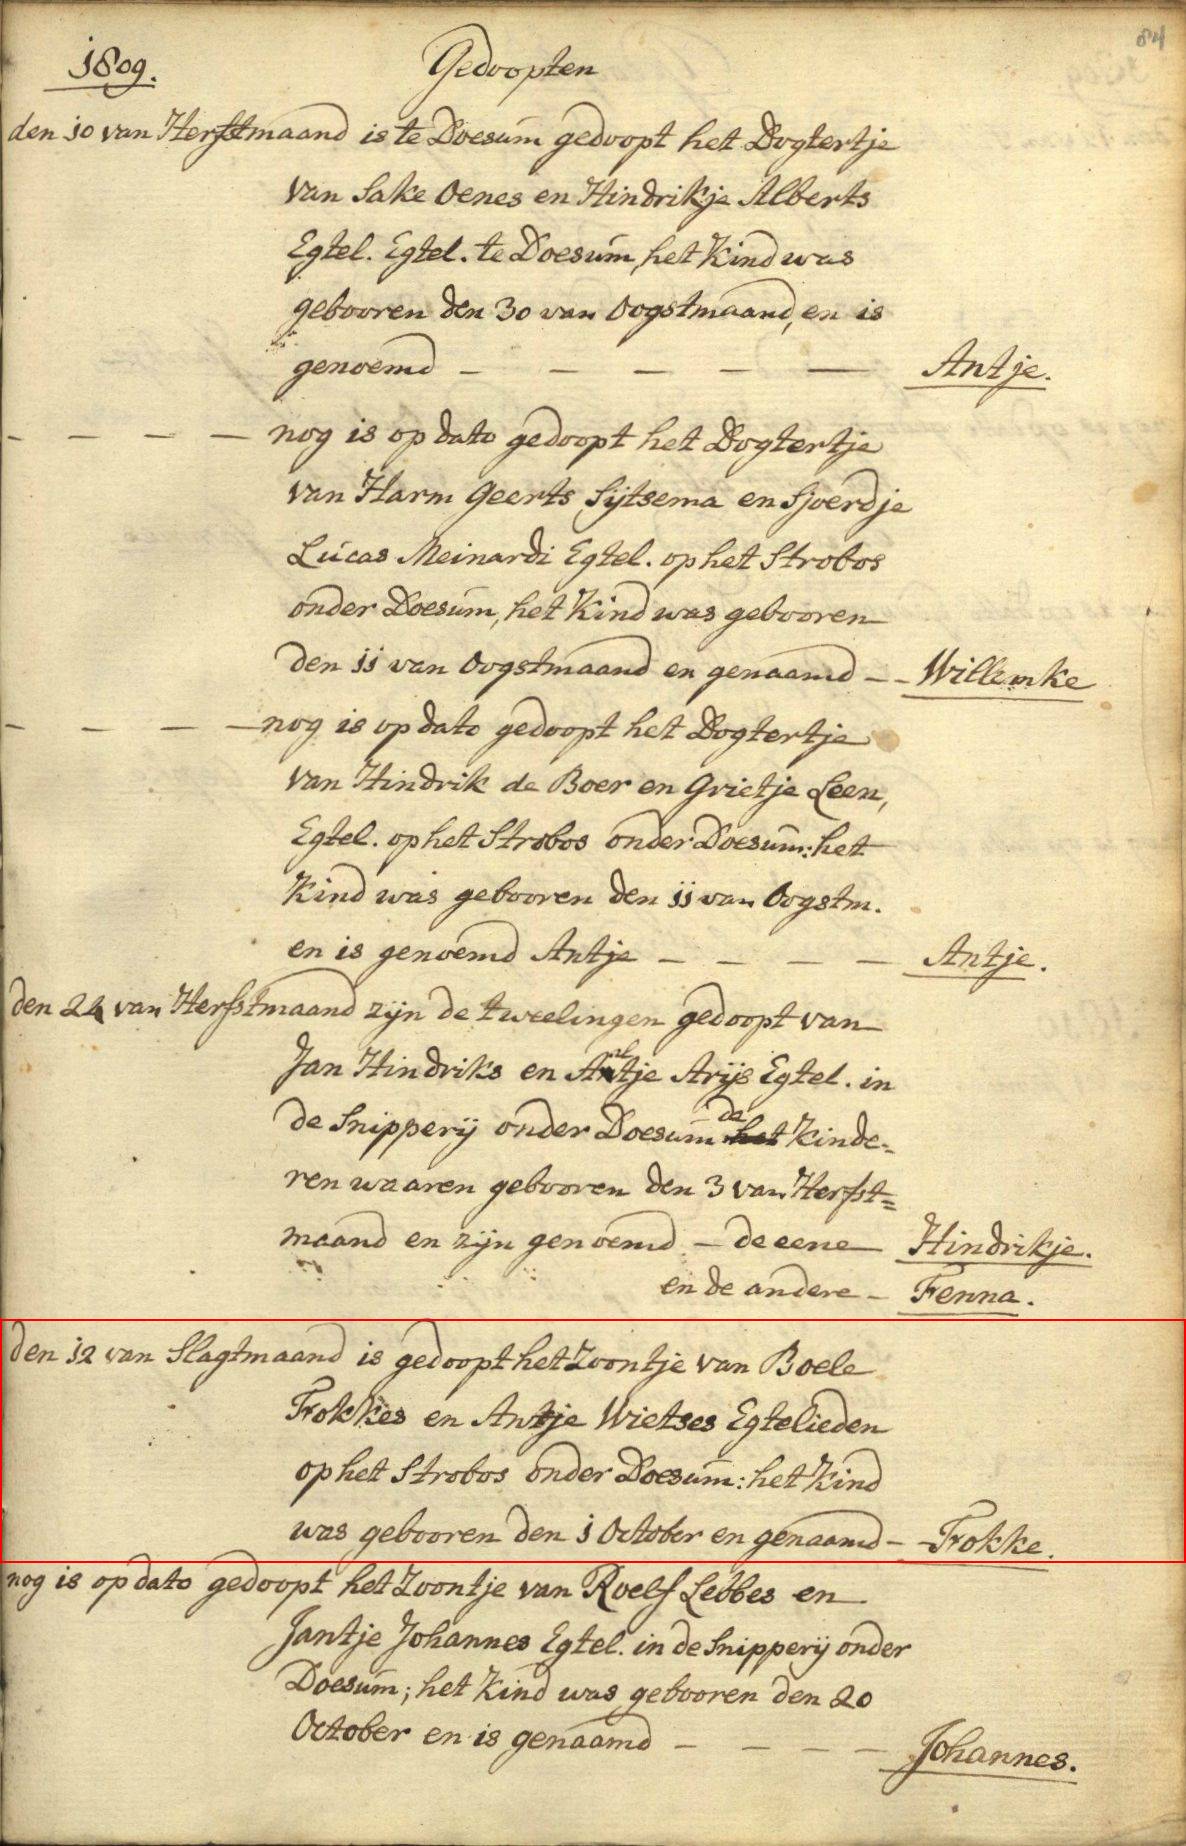 84
1809. Gedoopten
den 10 van Herfstmaand is te Doesum gedoopt het Dogtertje
van Sake Oenes en Hindrikje Alberts
Egtel. Egtel. te Doesum, het Kind was
gebooren den 30 van Oogstmaand, en is
genoemd — — — — — Antje.
— — — — nog is op dato gedoopt het Dogtertje
van Harm Geerts Sijtsema en Sjoerdje
Lucas Meinardi Egtel. op het Strobos
onder Doesum, het Kind was gebooren
den 11 van Oogstmaand en genaamd — — Willemke
— — — — nog is op dato gedoopt het Dogtertje
van Hindrik de Boer en Grietje Leen,
Egtel. op het Strobos onder Doesum: het
Kind was gebooren den 11 van Oogstm.
en is genoemd Antje — — — — Antje.
den 24 van Herfstmaand zijn de tweelingen gedoopt van
Jan Hindriks en Antje Arijs Egtel. in
de Snipperij onder Doesum de het Kinde=
ren waaren gebooren den 3 van Herfst=
maand en zijn genoemd — de eene — Hindrikje.
en de andere — Fenna.
den 12 van Slagtmaand is gedoopt het Zoontje van Boele
Frokkes en Antje Wietses Egtelieden
op het Strobos onder Doesum: het Kind
was gebooren den 1 October en genaamd — — Frokke.
nog is op dato gedoopt het Zoontje van Roelf Lebbes en
Jantje Johannes Egtel. in de Snipperij onder
Doesum; het Kind was gebooren den 20
October en is genaamd — — — — Johannes.